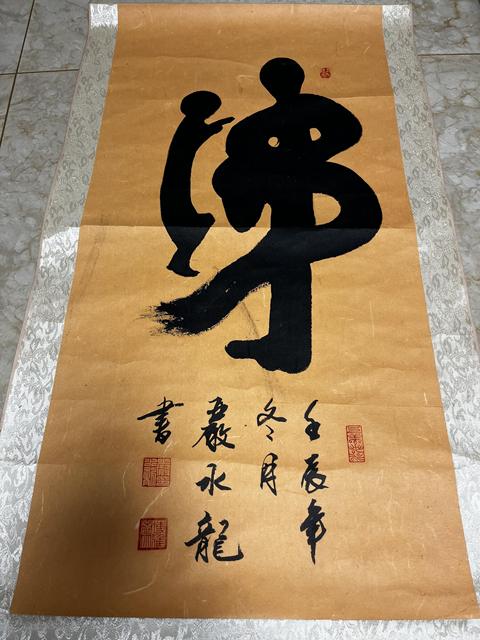 佛
壬辰年
冬月
嚴永龍
書